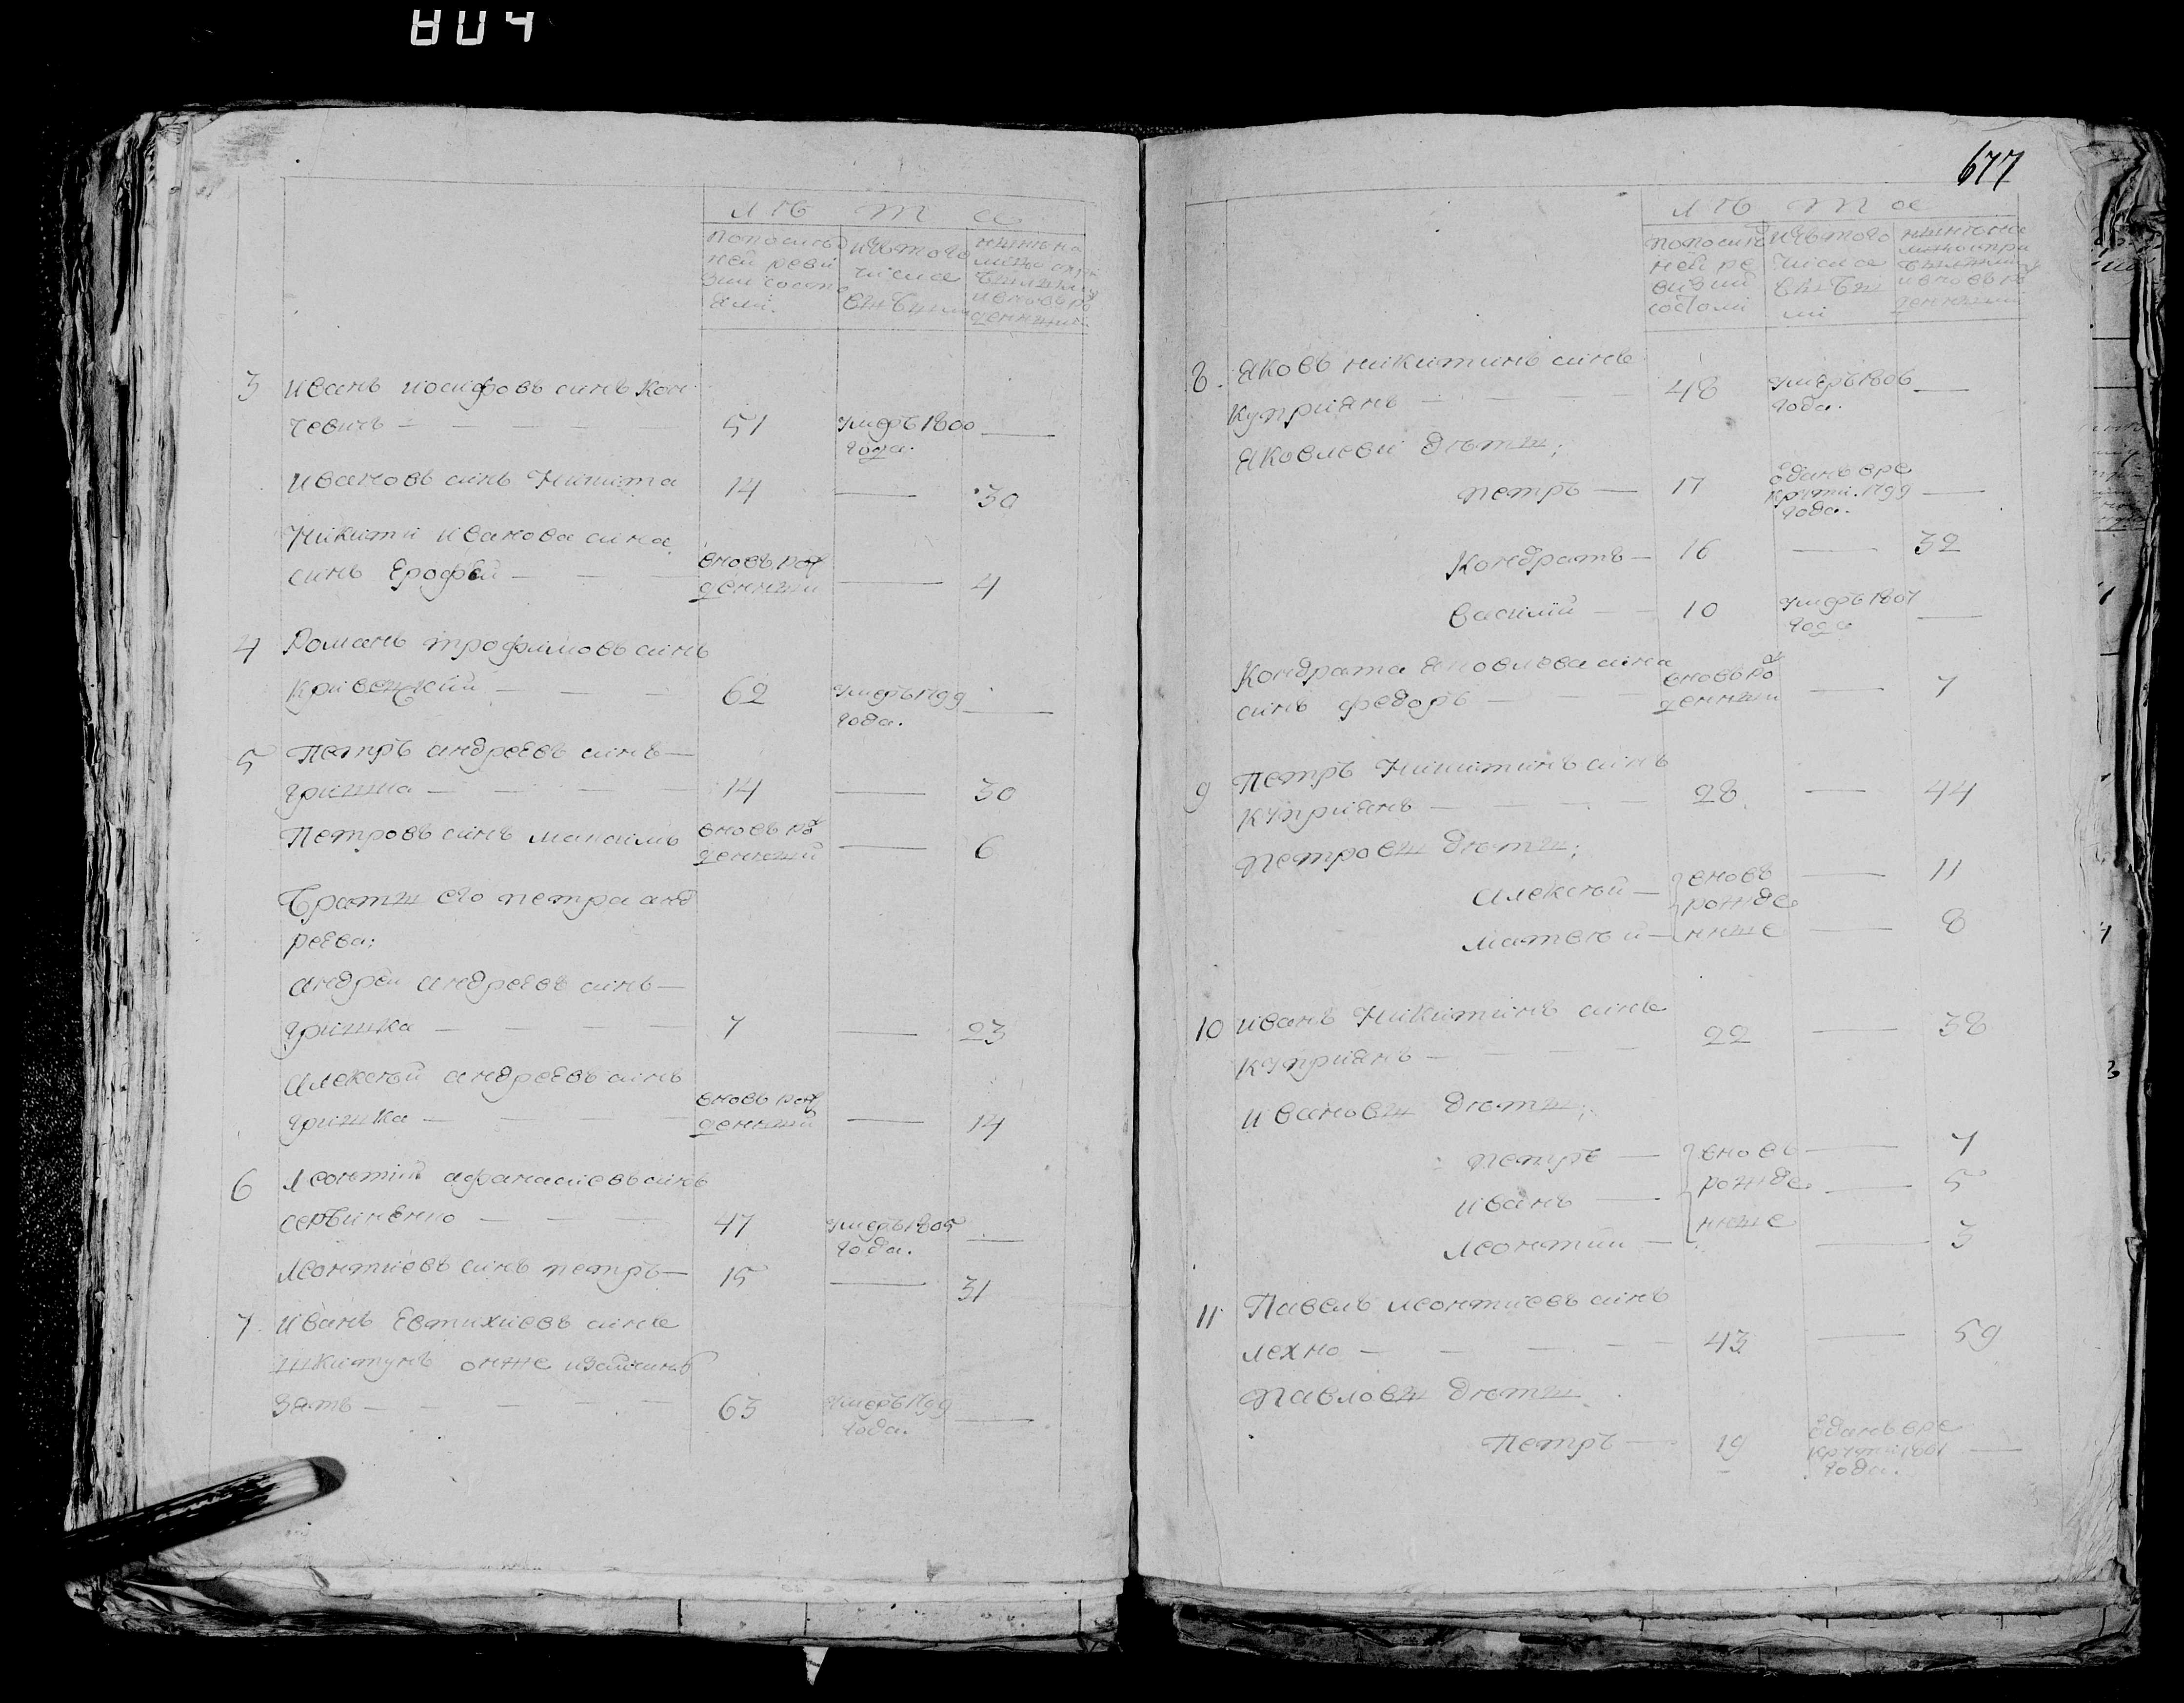 804
677
лѣ т а
попослѣд
ней реви
зии состо
яли.
изъ того
числа
выбыли
ныне на
лицо с при
былыми
и вновь ро
жденными
3 иванъ иосифовъ синъ Кон
чевичь — 51 умеръ 1800 —
года.
ивановъ синъ Никита 14 — 30
Никити иванова сина
синъ Ерофѣй — вновь рож
денный — 4
4 Романъ трофимовъ синъ
кривецкий — 62 умеръ 1799 —
года.
5 Петръ андреевъ синъ —
гришка — 14 — 30
Петровъ синъ максимъ вновь рож
денный — 6
Браты его петра анд
реева:
андрей андреевъ синъ —
гришка — 7 — 23
алексѣй андреевъ синъ
гришка — вновь рож
денный — 14
6 леонтий афанасиевъ синъ
— 47 умеръ 1805 —
года.
леонтиевъ синъ петръ — 15 — 31
7 иванъ Евтихиевъ синъ
онже
зять — 63 умеръ 1799 —
года.
лѣ т а
попослѣд
ней ре
визии
состояли
изъ того
числа
выбы
ли
ныне на
лицо с при
былыми
и вновь ро
жденными
8. яковъ никитинъ синъ
куприянъ — 48 умеръ 1806 —
года.
яковлеви дѣты;
петръ — 17 Зданъ в ре
круты. 1799 —
года.
Кондратъ — 16 — 32
василий — 10 умеръ 1807 —
года
Кондрата яковлева сина
синъ федоръ — вновь рож
денный — 7
9 Петръ Никитинъ синъ
куприянъ — 28 — 44
Петровы дѣты;
алексѣй — вновь — 11
рожде
матвѣй — нные — 8
10 иванъ Никитинъ синъ
куприянъ — 22 — 38
ивановы дѣты;
петръ — вновь — 7
иванъ — рожде — 5
нные
леонтий — — 3
11 Павелъ леонтиевъ синъ
лехно — 43 — 59
Павловы дѣты
Петръ — 19 Зданъ в ре
круты 1801 —
года.